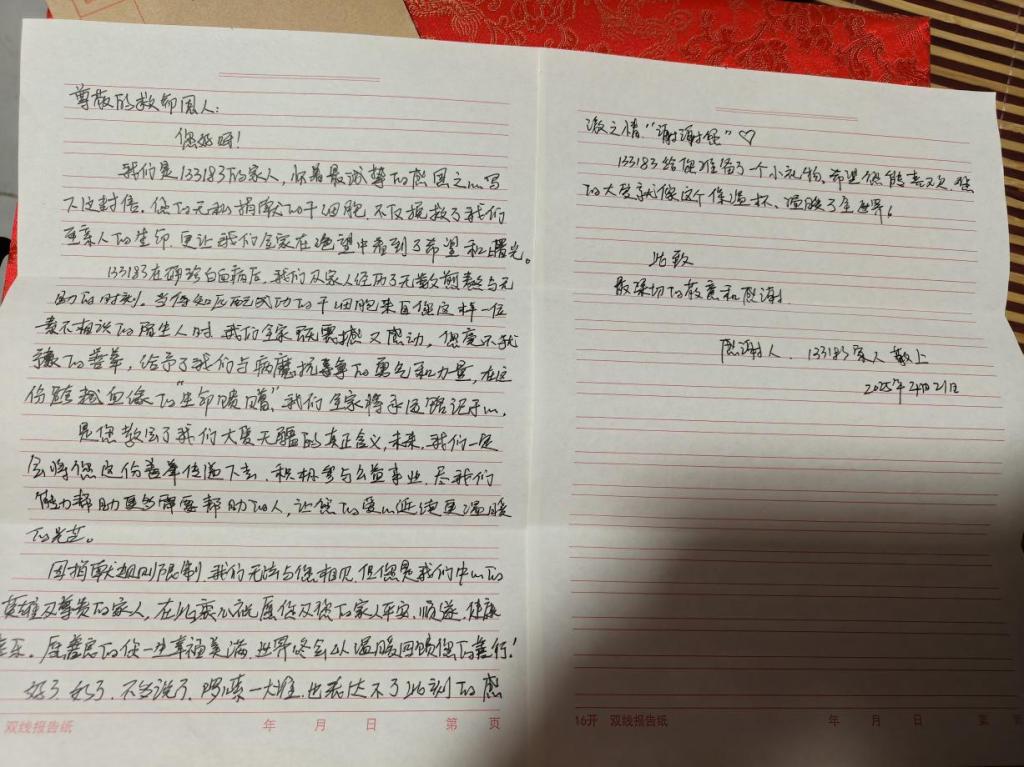 尊敬的救命恩人：
您好呀！
我们是133183的家人，怀着最诚挚的感恩之心写
下这封信。您的无私捐献的干细胞，不仅拯救了我们
至亲人的生命，更让我们全家在绝望中看到了希望和曙光。
133183在确诊白血病后，我们及家人经历了无数煎熬与无
助的时刻。当得知匹配成功的干细胞来自您这样一位
素不相识的陌生人时，我们全家既震撼又感动，您毫不犹
豫的善举，给予了我们与病魔抗争的勇气和力量，在这
份跨越血缘的"生命馈赠"，我们全家将永远铭记于心。
是您教会了我们大爱无疆的真正含义，未来，我们一定
会将您这份善举传递下去、积极参与公益事业、尽我们
能力帮助更多需要帮助的人，让您的爱心延续更温暖
的光芒。
因捐献规则限制，我们无法与您相见，但您是我们心中的
英雄及尊贵的家人，在此衷心祝愿您及您的家人平安、顺遂、健康
喜乐。愿善良的你一生幸福美满，世界终会以温暖回馈您的善行！
好了好了，不多说了，啰嗦一大堆，也表达不了此刻的感
激之情"谢谢您"♡
133183给您准备了一个小礼物，希望您能喜欢，您
的大爱就像这个保温杯，温暖了全世界！
此致
最深切的敬意和感谢
感谢人：133183家人敬上
2025年2月21日
双线报告纸 年 月 日 第 页
16开 双线报告纸 年 月 日 第 页